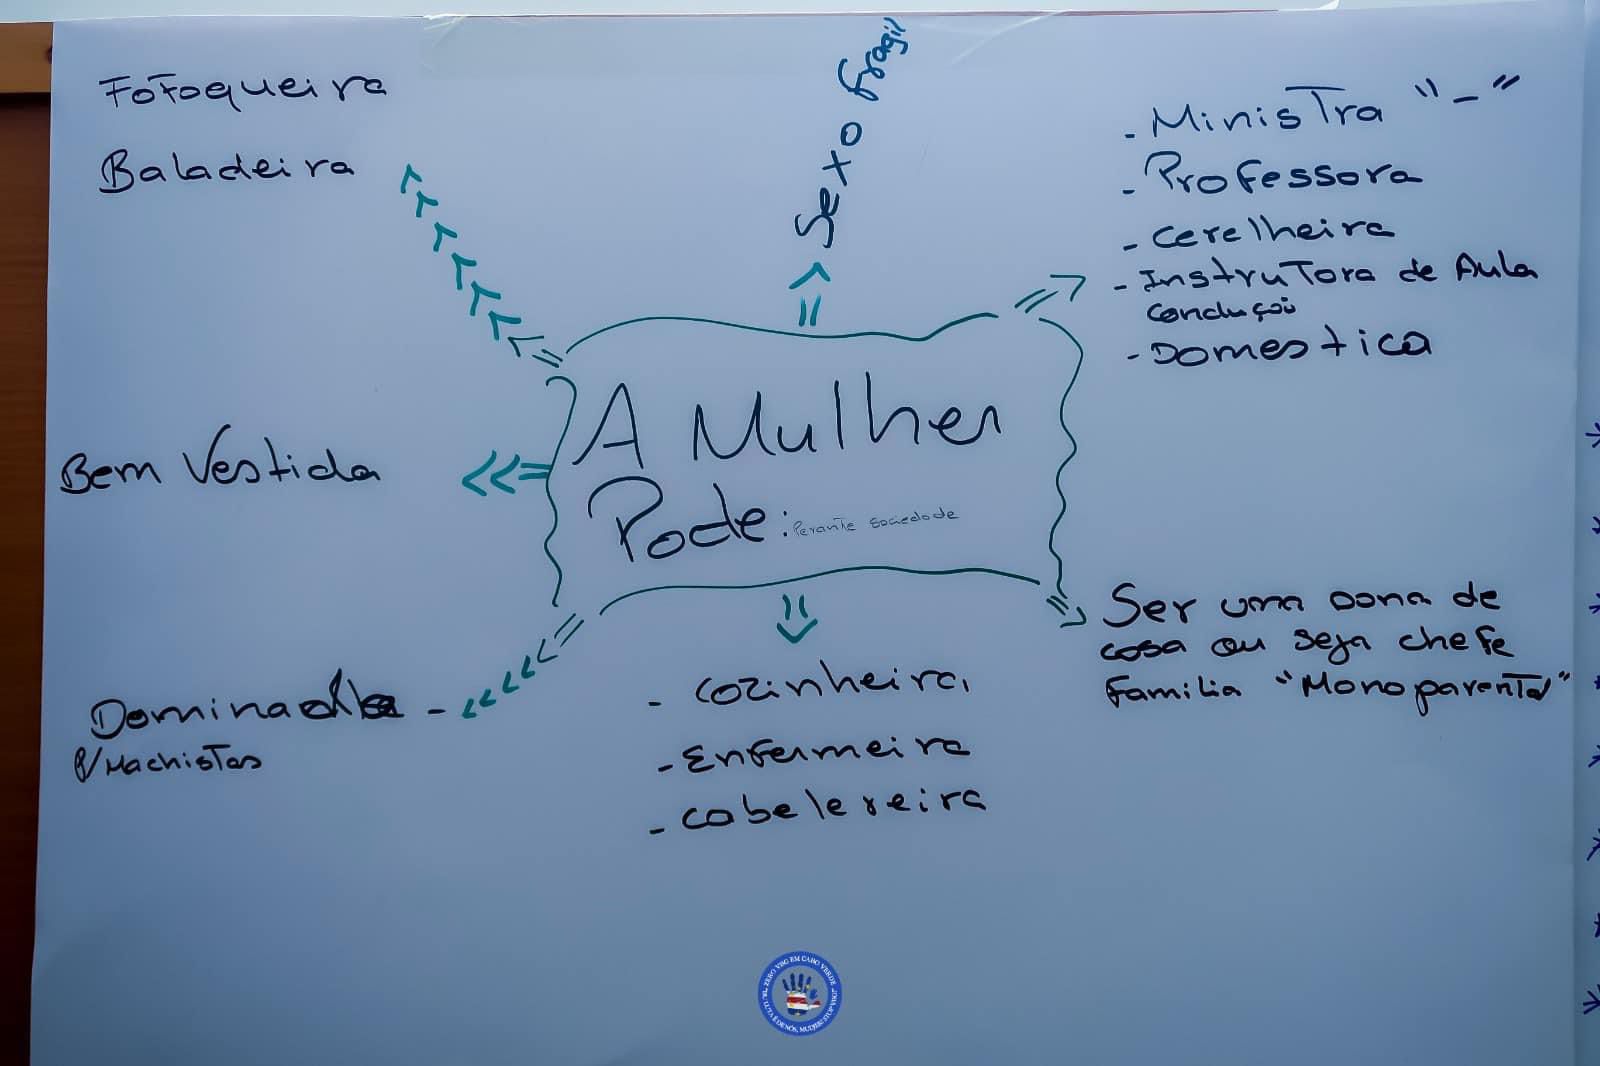 FoFoqueira
Baladeira
Sexo fragil
- MinisTra "-"
- Professora
- Cerelheira
- InstruTora de Aula
Conduçõi
- Domestica
A Mulher
Pode: Perante sociedade
Bem Vestida
Ser uma Dona de
casa ou seja chefe
Familia "MonoparenTal"
Dominada -
P/MachisTas
- Cozinheira,
- Enfermeira
- Cabelereira
ZERO VBG EM CABO VERDE